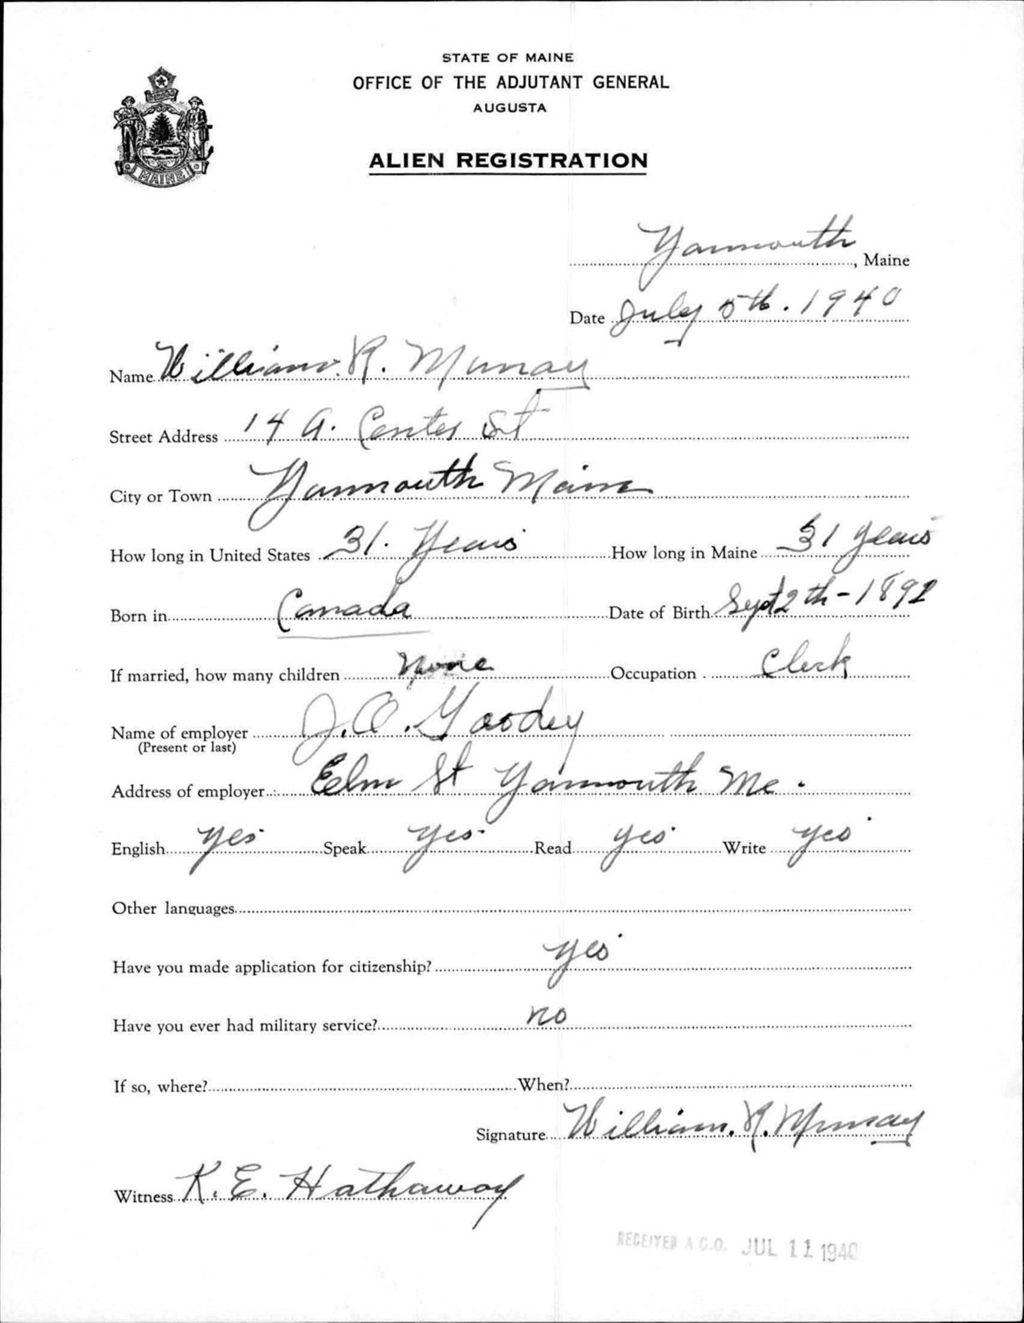 STATE OF MAINE
OFFICE OF THE ADJUTANT GENERAL
AUGUSTA
ALIEN REGISTRATION
MAINE
Yarmouth, Maine
Date July 5th. 1940
Name William. R. Murray
Street Address 14 A. Center St
City or Town Yarmouth Maine
How long in United States 31. Years How long in Maine 31 years
Born in Canada Date of Birth Sept 2th - 1892
If married, how many children None Occupation Clerk
Name of employer J. A. Goodey
(Present or last)
Address of employer Elm St Yarmouth Me.
English yes Speak yes Read yes Write yes
Other languages
Have you made application for citizenship? yes
Have you ever had military service? no
If so, where? When?
Signature William. R. Murray
Witness K. E. Hathaway
RECEIVED A.G.O. JUL 11 1940